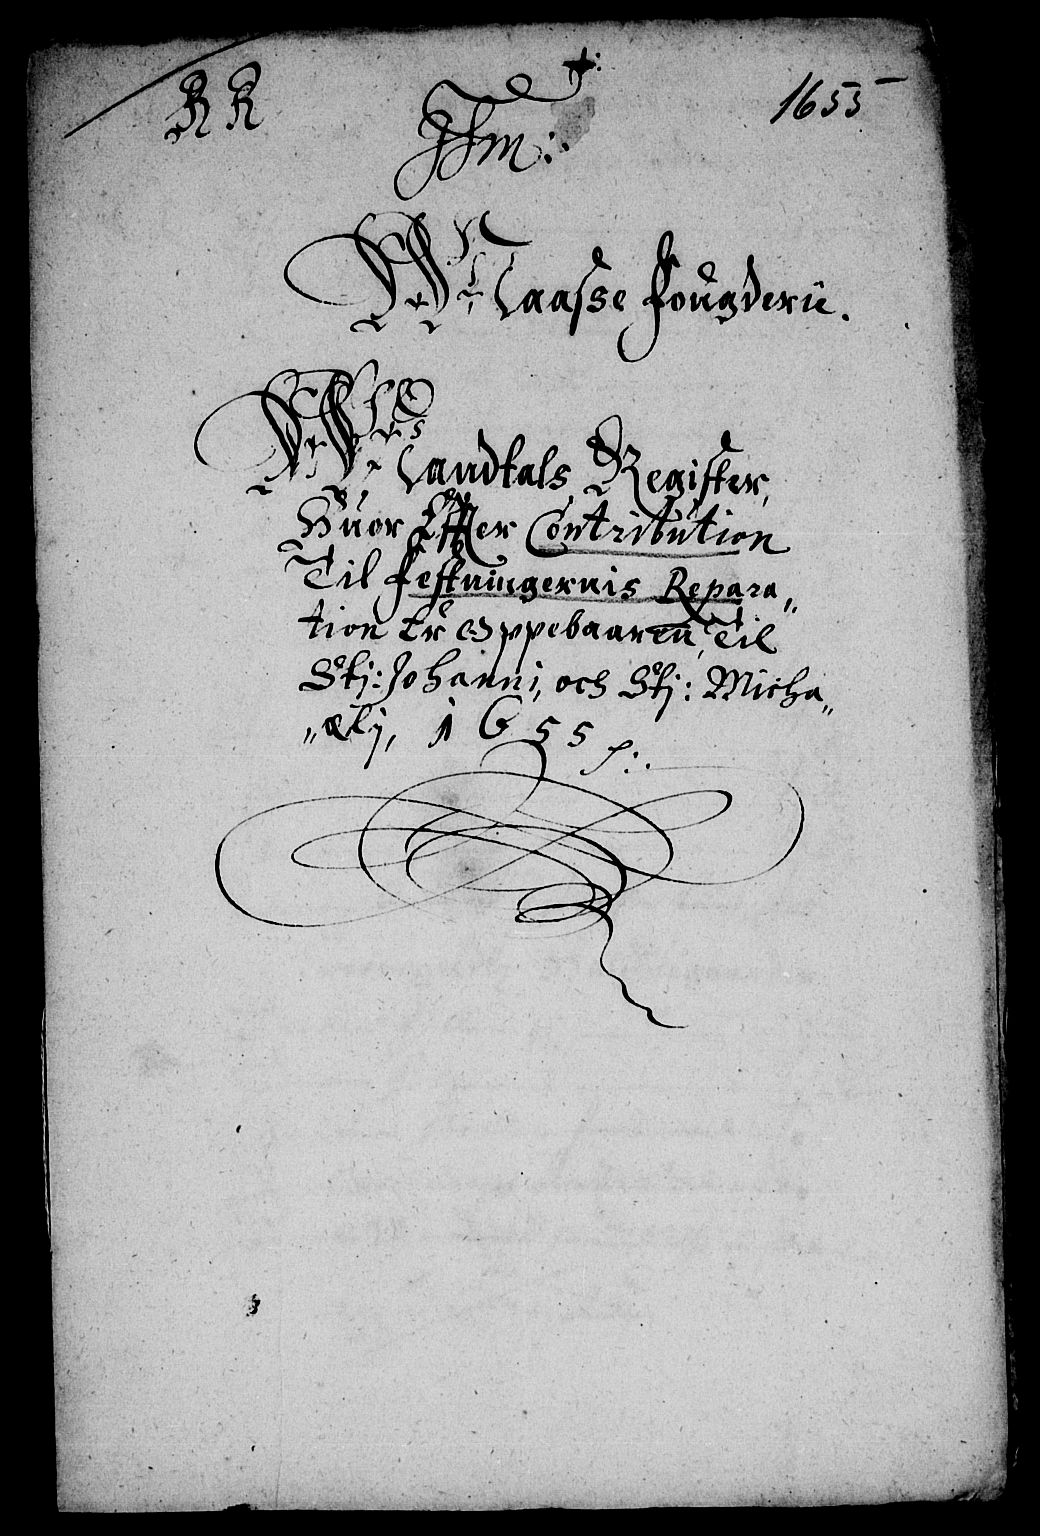 RR
1655
Jhm:
Maasse Fougderii.
Mandtals Register,
Huor Effter Contribution
Til Festningernis Repara„
tion Er Oppebaaren, Til
Stj: Johanni, och Stj: Micha„
„elij, 1655